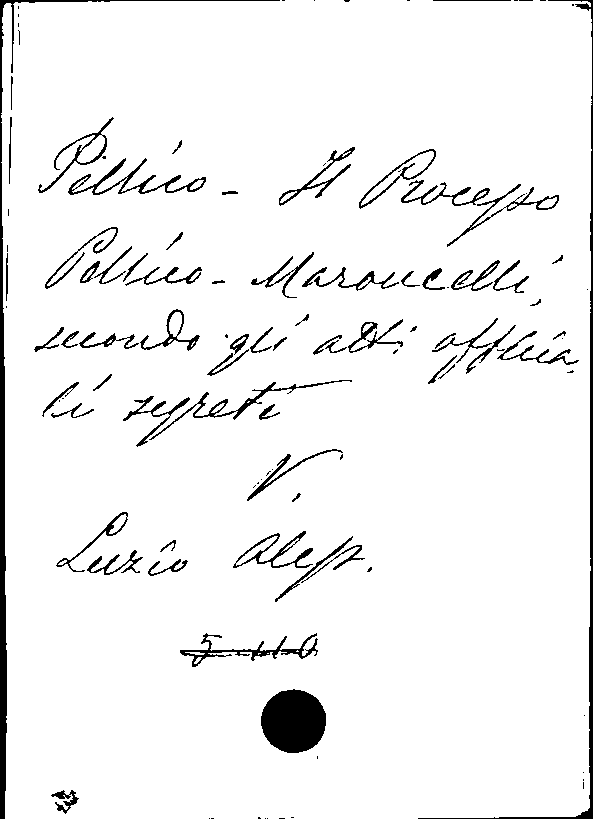 Pellico - Il Processo
Pellico - Maroncelli,
secondo gli atti officia-
li segreti
V.
Luzio Aless.
5 110